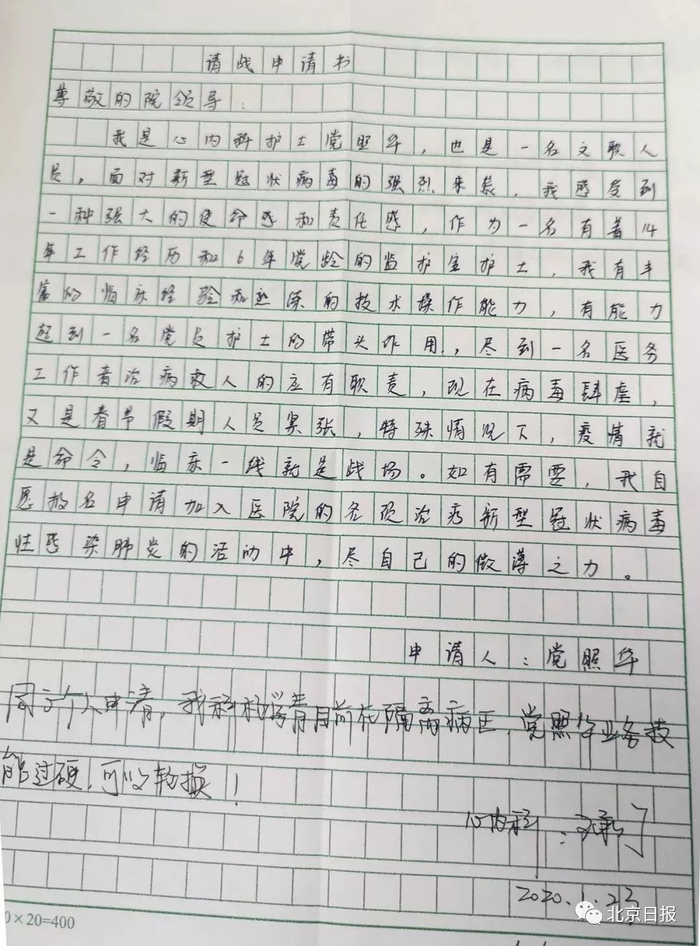 请战申请书
尊敬的院领导：
我是心内科护士党照华，也是一名文职人
员，面对新型冠状病毒的强烈来袭，我感受到
一种强大的使命感和责任感，作为一名有着14
年工作经历和6年党龄的监护室护士，我有丰
富的临床经验和熟练的技术操作能力，有能力
起到一名党员护士的带头作用，尽到一名医务
工作者治病救人的应有职责，现在病毒肆虐，
又是春节假期人员紧张，特殊情况下，疫情就
是命令，临床一线就是战场。如有需要，我自
愿报名申请加入医院的各项治疗新型冠状病毒
性感染肺炎的活动中，尽自己的微薄之力。
申请人：党照华
同意个人申请，我科目前在隔离病区，党照华业务技
能过硬，可以轮换！
心内科：
2020.1.22
0×20=400
北京日报